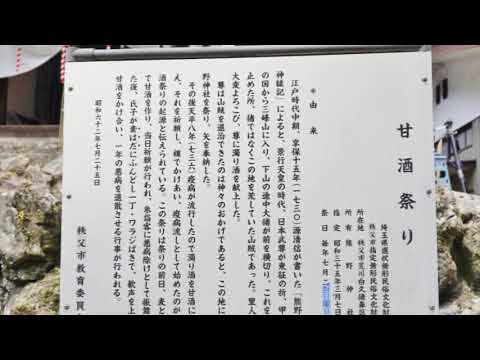 甘酒祭り
埼玉県選択無形民俗文化財
秩父市指定無形民俗文化財
所在地 秩父市荒川白久
所有 熊野神社
指定 昭和三十五年三月七日
祭日 毎年七月
＊由来
江戸時代中期、享保十五年（一七三〇）源清信が書いた「熊野
神縁記」によると、景行天皇の時代、日本武尊が東征の折、甲
の国から三峰山に入り、下山の途中大猪が前を横切り、これを
止めた所、猪ではなくこの地を荒していた山賊であった。里人
大変よろこび、尊に濁り酒を献上した。
尊は山賊を退治できたのは神々のおかげであると、この地に
野神社を祭り、矢を奉納した。
その後天平八年（七三六）疫病が流行したので濁り酒を甘酒に
え、それを祈願し、樽でかけあい、疫病流しとして始めたのが
酒祭りの起源と伝えられている。この祭りは祭りの前日、麦と
で甘酒を作り、当日祈願が行われ、参詣客に悪病除けとして振舞
た後、氏子が素はだにふんどし一丁・ワラジばきで、歓声を上
甘酒をかけ合い、一年の悪病を退散させる行事が行われる。
昭和六十二年七月二十五日
秩父市教育委員